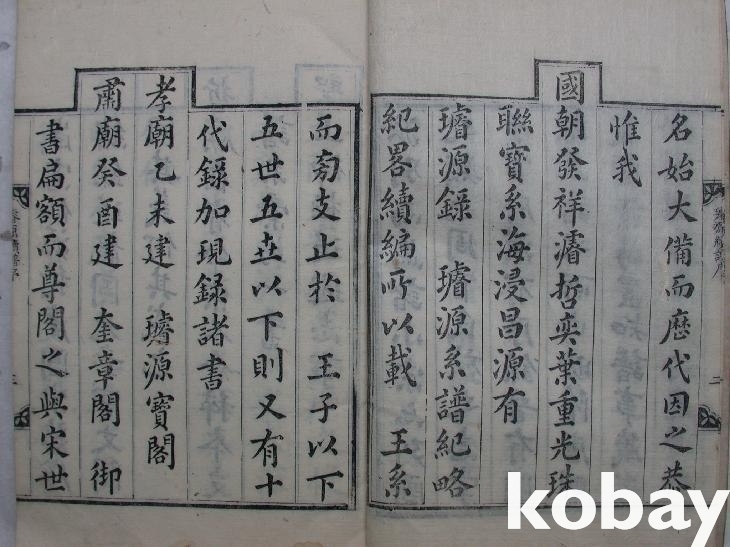 名始大備而歷代因之恭
惟我
國朝發祥濬哲奕葉重光珠
聯寶系海浸昌源有
璿源錄 璿源系譜紀略
紀畧續編所以載 王系
而旁支止於 王子以下
五世五世以下則又有十
代錄加現錄諸書
孝廟乙未建 璿源寶閣
肅廟癸酉建 奎章閣 御
書扁額而尊閣之與宋世
kobay